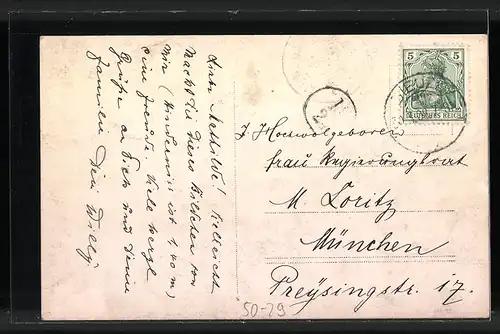 Liebe Mathilde! Vielleicht
macht dir dieses Bildchen von
mir (Hindernis ist 1.40 m)
eine Freude. Viele herzl.
Grüße an Dich und Deine
Familie Dein Willy
5 5
DEUTSCHES REICH
1
2
I. Hochwolgeboren
Frau Regierungsrat
M. Loritz
München
Preysingstr. 17.
50-29